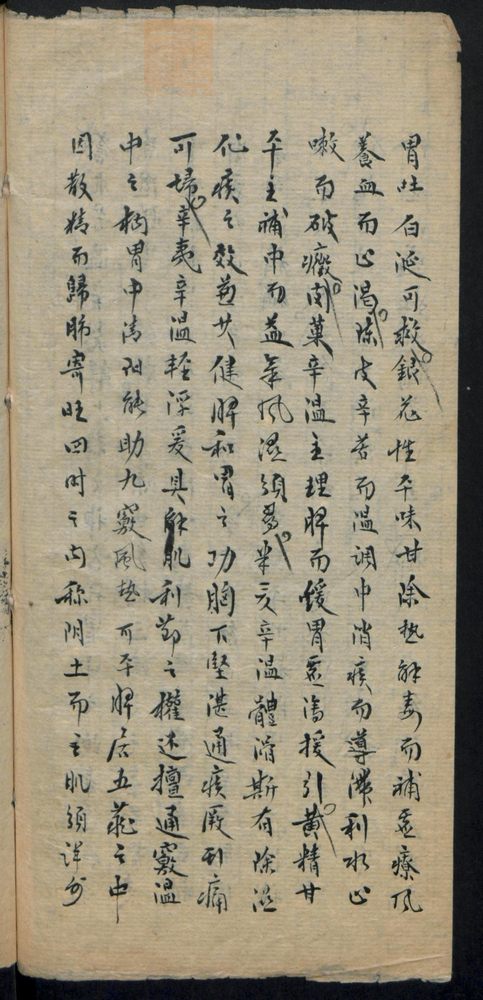 胃吐白涎可救銀花性平味甘除熱解毒而補虛療风
養血而止渴陈皮辛苦而温調中消痰而導滯利水止
嗽而破癥肉菓辛温主理脾而煖胃虛瀉援引黃精甘
平主補中而益氣风濕須多半夏辛温體滑斯有除湿
化痰之效兼其健脾和胃之功胸下堅湛通痰厥引痛
可掃辛夷辛温軽浮爰具解肌利節之權还擅通竅温
中之柄胃中清阳能助九竅风热可平脾居五蔵之中
因散精而歸肺寄旺四时之内称阴土而主肌須详